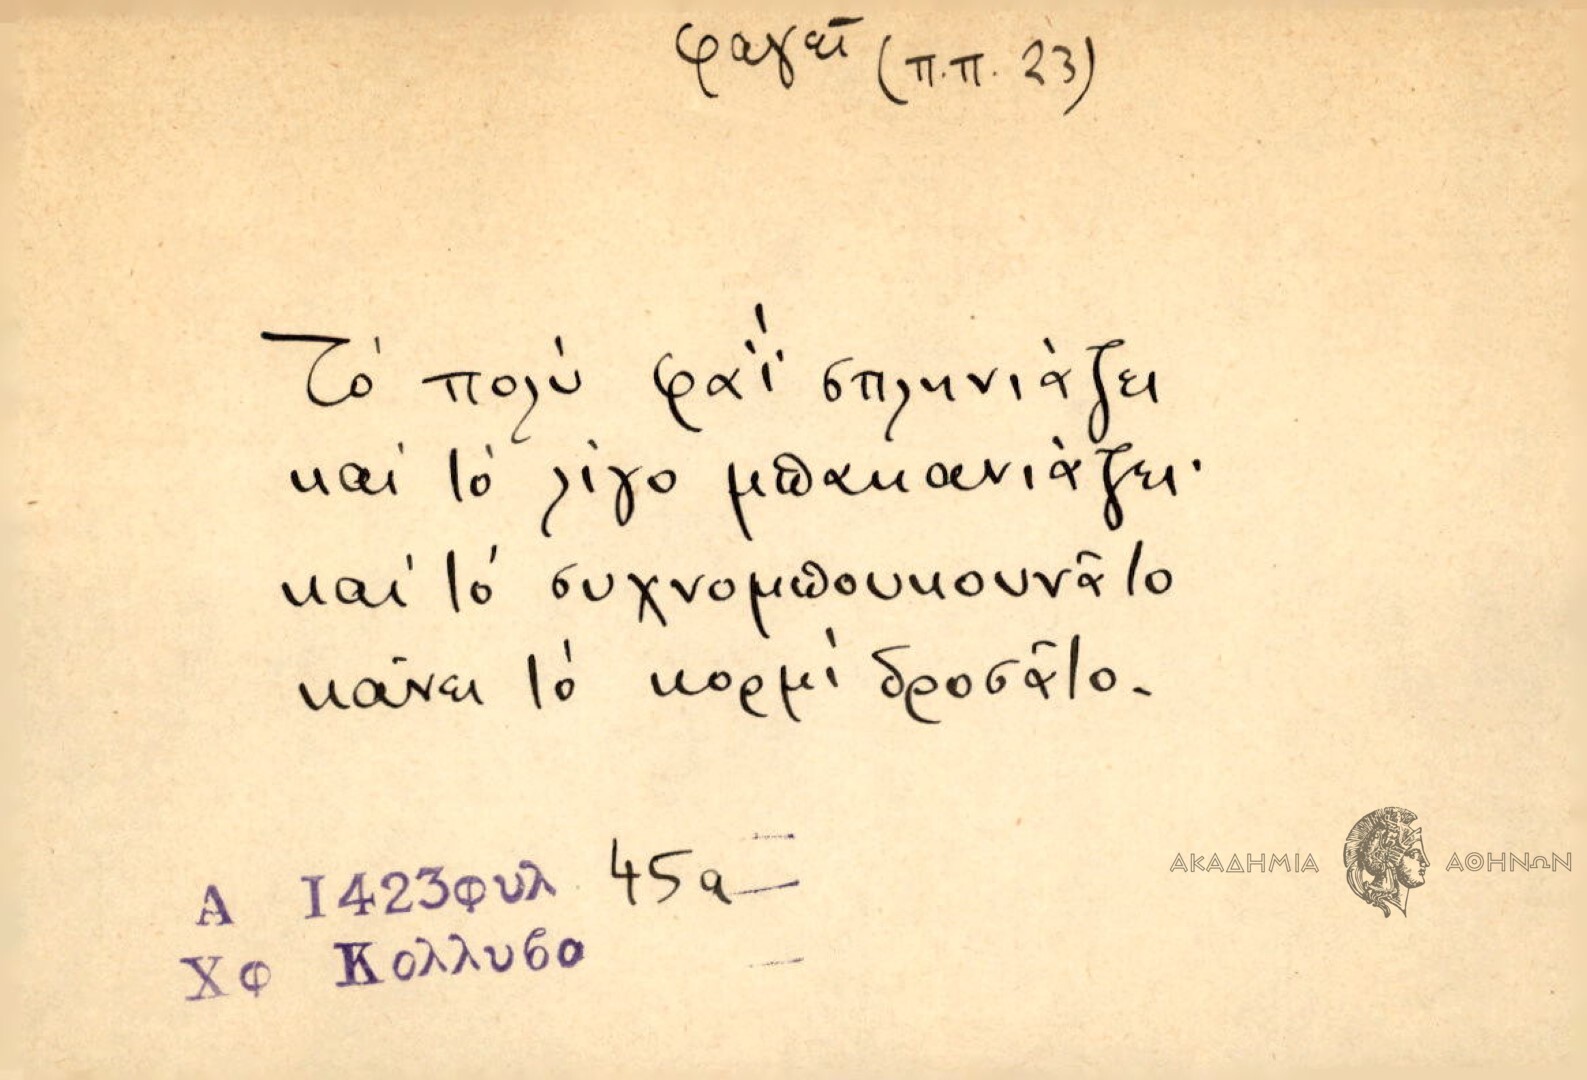 φαγεῖ (π.π. 23)
Τό πολύ φαΐ σπληνιάζει
καί τό λίγο μπακανιάζει·
καί τό συχνομπουκουνᾶτο
κάνει τό κορμί δροσᾶτο.
Α 1423φυλ 45α
Χφ Κολλυβα
ΑΚΑΔΗΜΙΑ ΑΘΗΝΩΝ